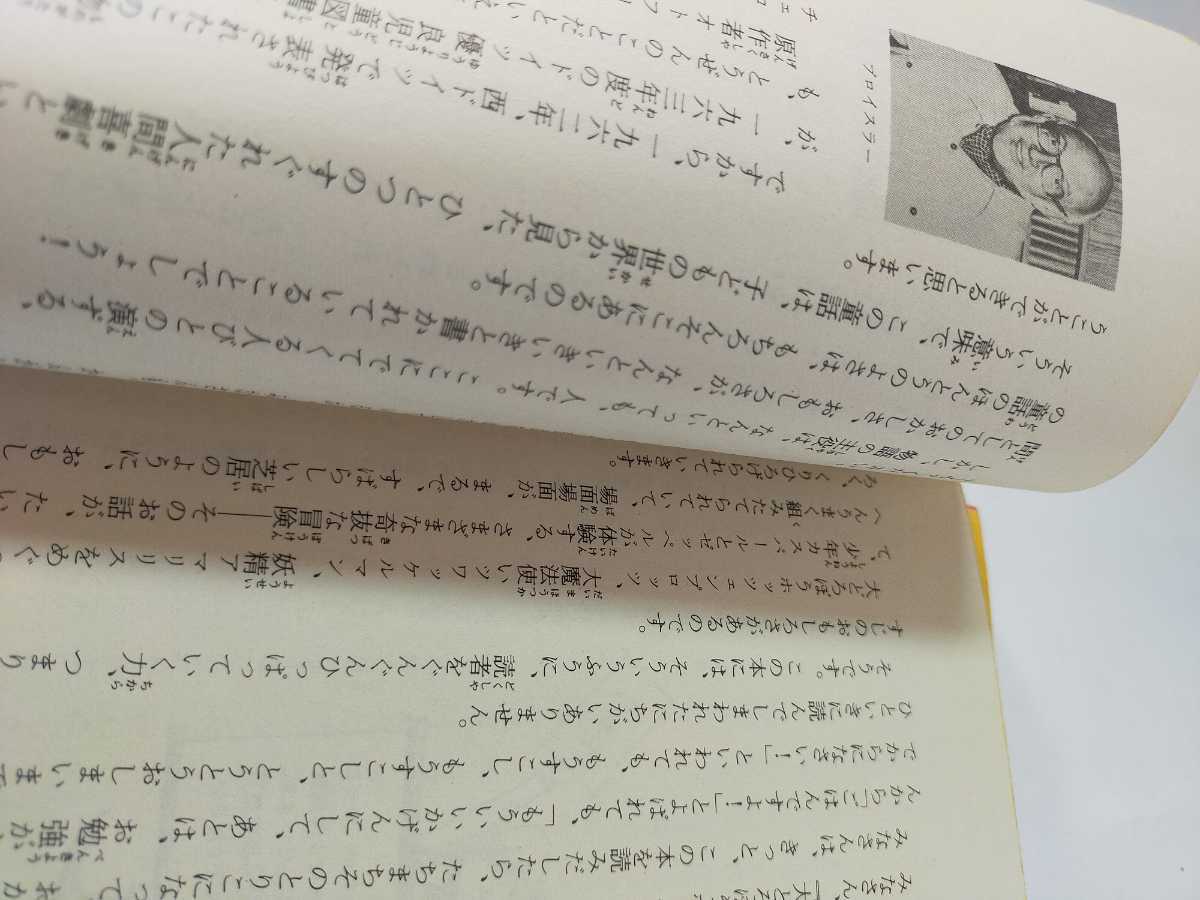 みなさん、「大どろぼ
みなさんは、きっと、この本を読みだしたら、たちまちそのとりこになって、おか
んから「ごはんですよ!」とよばれても、「もういいかげんにして、あとは、お勉強が
でからになさい!」といわれても、もうすこし、もうすこしと、とうとうおしまいまで
ひといきに読んでしまわれたにちがいありません。
そうです。この本には、そういうふうに、読者をぐんぐんひっぱっていく力、つまり
すじのおもしろさがあるのです。
大どろぼうホッツェンプロッツ、大魔法使いツワッケルマン、妖精アマリリスをめぐっ
て、少年カスパールとゼッペルが体験する、さまざまな奇抜な冒険――そのお話が、たい
へんうまく組みたてられていて、場面場面が、まるで、すばらしい芝居のように、おもし
ろく、くりひろげられていきます。
しかし、物語の主役は、なんといっても、人です。ここにでてくる人びとの演ずる、
間としてのおかしさ、おもしろさが、なんといきいきと書かれていることでしょう!
の童話のほんとうのよさは、もちろんそこにあるのです。
そういう意味で、この童話は、子どもの世界から見た、ひとつのすぐれた人間喜劇とい
うことができると思います。
ですから、一九六二年、西ドイツで発表されたこの
が、一九六三年度のドイツ優良児童図書
も、とうぜんのことだとい
原作者オトフ
チェ
プロイスラー